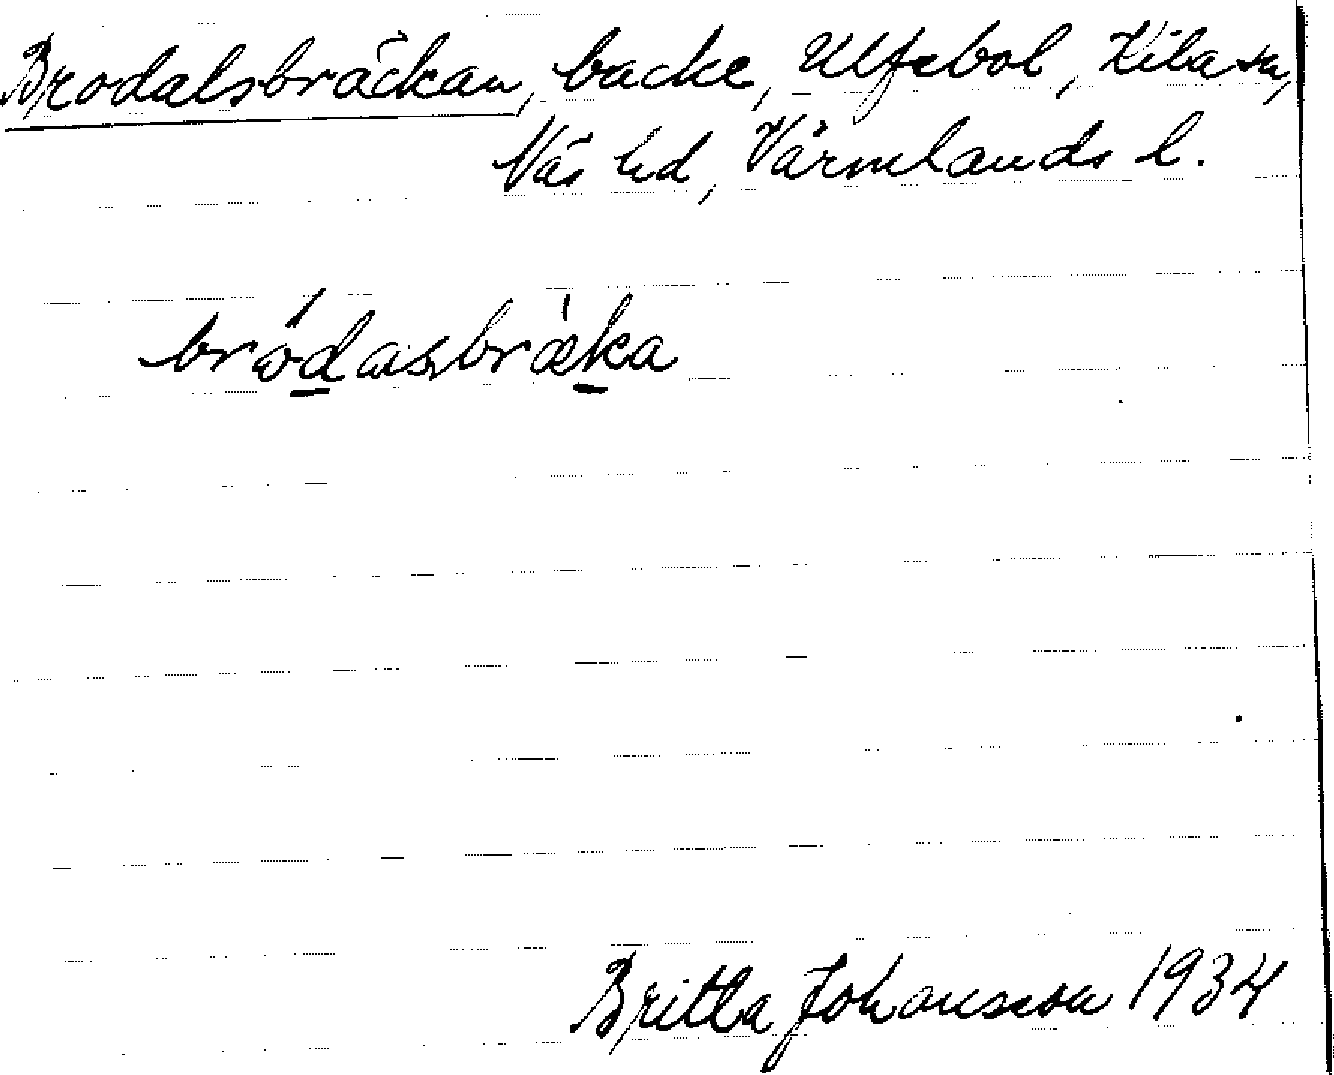 Brodalsbräckan, backe, Ulfsbol, Kila sn,
Näs hd, Värmlands l.
brödasbræka
Britta Johansson 1934